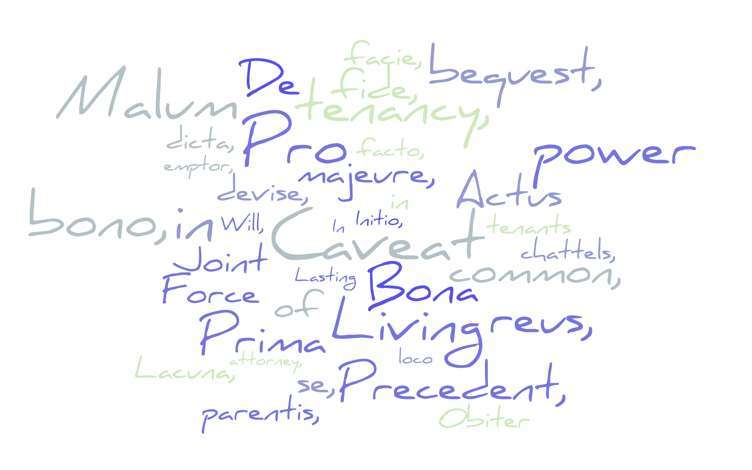 facie,
De fide, bequest,
Malum tenancy,
dicta, Pro facto, power
emptor, majeure,
devise, in Actus
bono, in Will, In Initio, tenants
Caveat chattels,
Joint Lasting common,
Force of Bona
Prima Living reus,
Lacuna, attorney, loco
se, Precedent,
parentis, Obiter